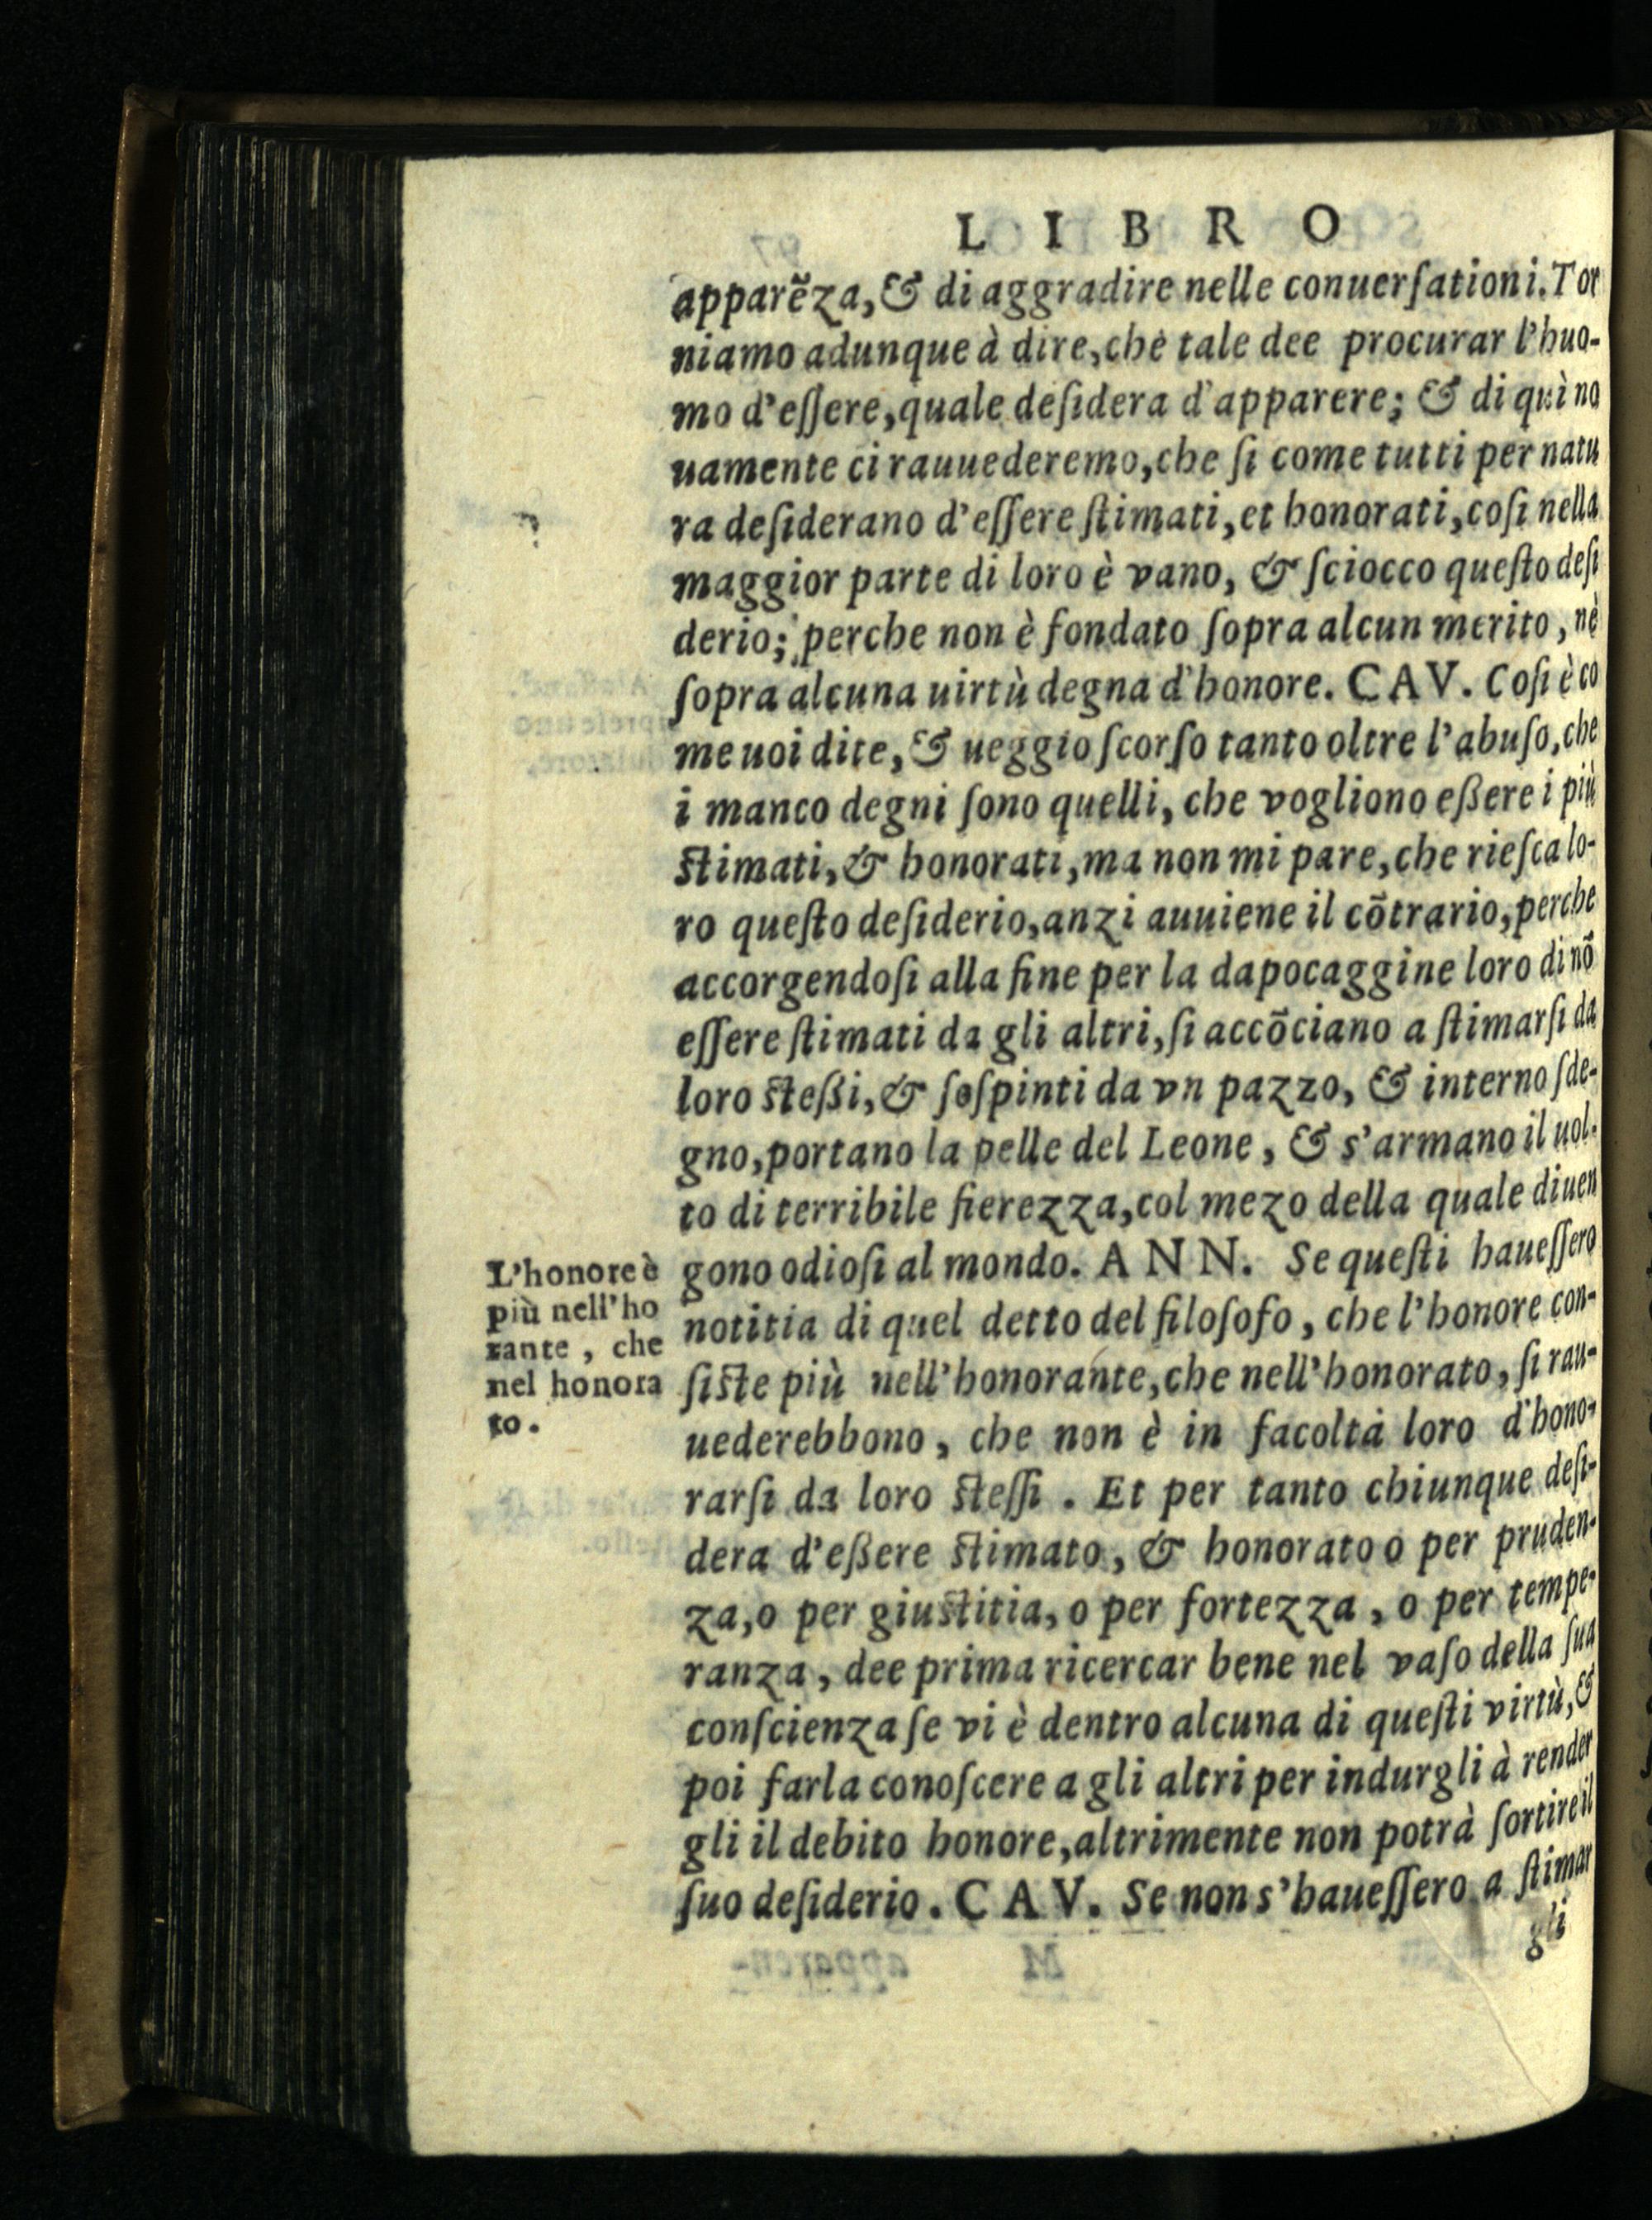 LIBRO
apparẽza, & di aggradire nelle conuerſationi. Tor
niamo adunque à dire, che tale dee procurar l'huo-
mo d'eſſere, quale deſidera d'apparere; & di quì no
uamente ci rauuederemo, che ſi come tutti per natu
ra deſiderano d'eſſere ſtimati, et honorati, coſi nella
maggior parte di loro è vano, & ſciocco queſto deſi
derio; perche non è fondato ſopra alcun merito, nè
ſopra alcuna uirtù degna d'honore. CAV. Coſi è co
me uoi dite, & ueggio ſcorſo tanto oltre l'abuſo, che
i manco degni ſono quelli, che vogliono eßere i più
ſtimati, & honorati, ma non mi pare, che rieſca lo-
ro queſto deſiderio, anzi auuiene il cõtrario, perche
accorgendoſi alla fine per la dapocaggine loro di nõ
eſſere ſtimati da gli altri, ſi accõciano a ſtimarſi da
loro ſteßi, & ſoſpinti da vn pazzo, & interno ſde-
gno, portano la pelle del Leone, & s'armano il uol-
to di terribile fierezza, col mezo della quale diuen
gono odioſi al mondo. ANN. Se queſti haueſſero
notitia di quel detto del filoſofo, che l'honore con-
ſiſte più nell'honorante, che nell'honorato, ſi rau-
uederebbono, che non è in facoltà loro d'hono-
rarſi da loro ſteſſi. Et per tanto chiunque deſi-
dera d'eßere ſtimato, & honorato o per pruden-
za, o per giuſtitia, o per fortezza, o per tempe-
ranza, dee prima ricercar bene nel vaſo della ſua
conſcienza ſe vi è dentro alcuna di queſti virtù, &
poi farla conoſcere a gli altri per indurgli à render
gli il debito honore, altrimente non potrà ſortire il
ſuo deſiderio. CAV. Se non s'haueſſero a ſtimar
gli
L'honore è
più nell'ho
rante, che
nel honora
to.